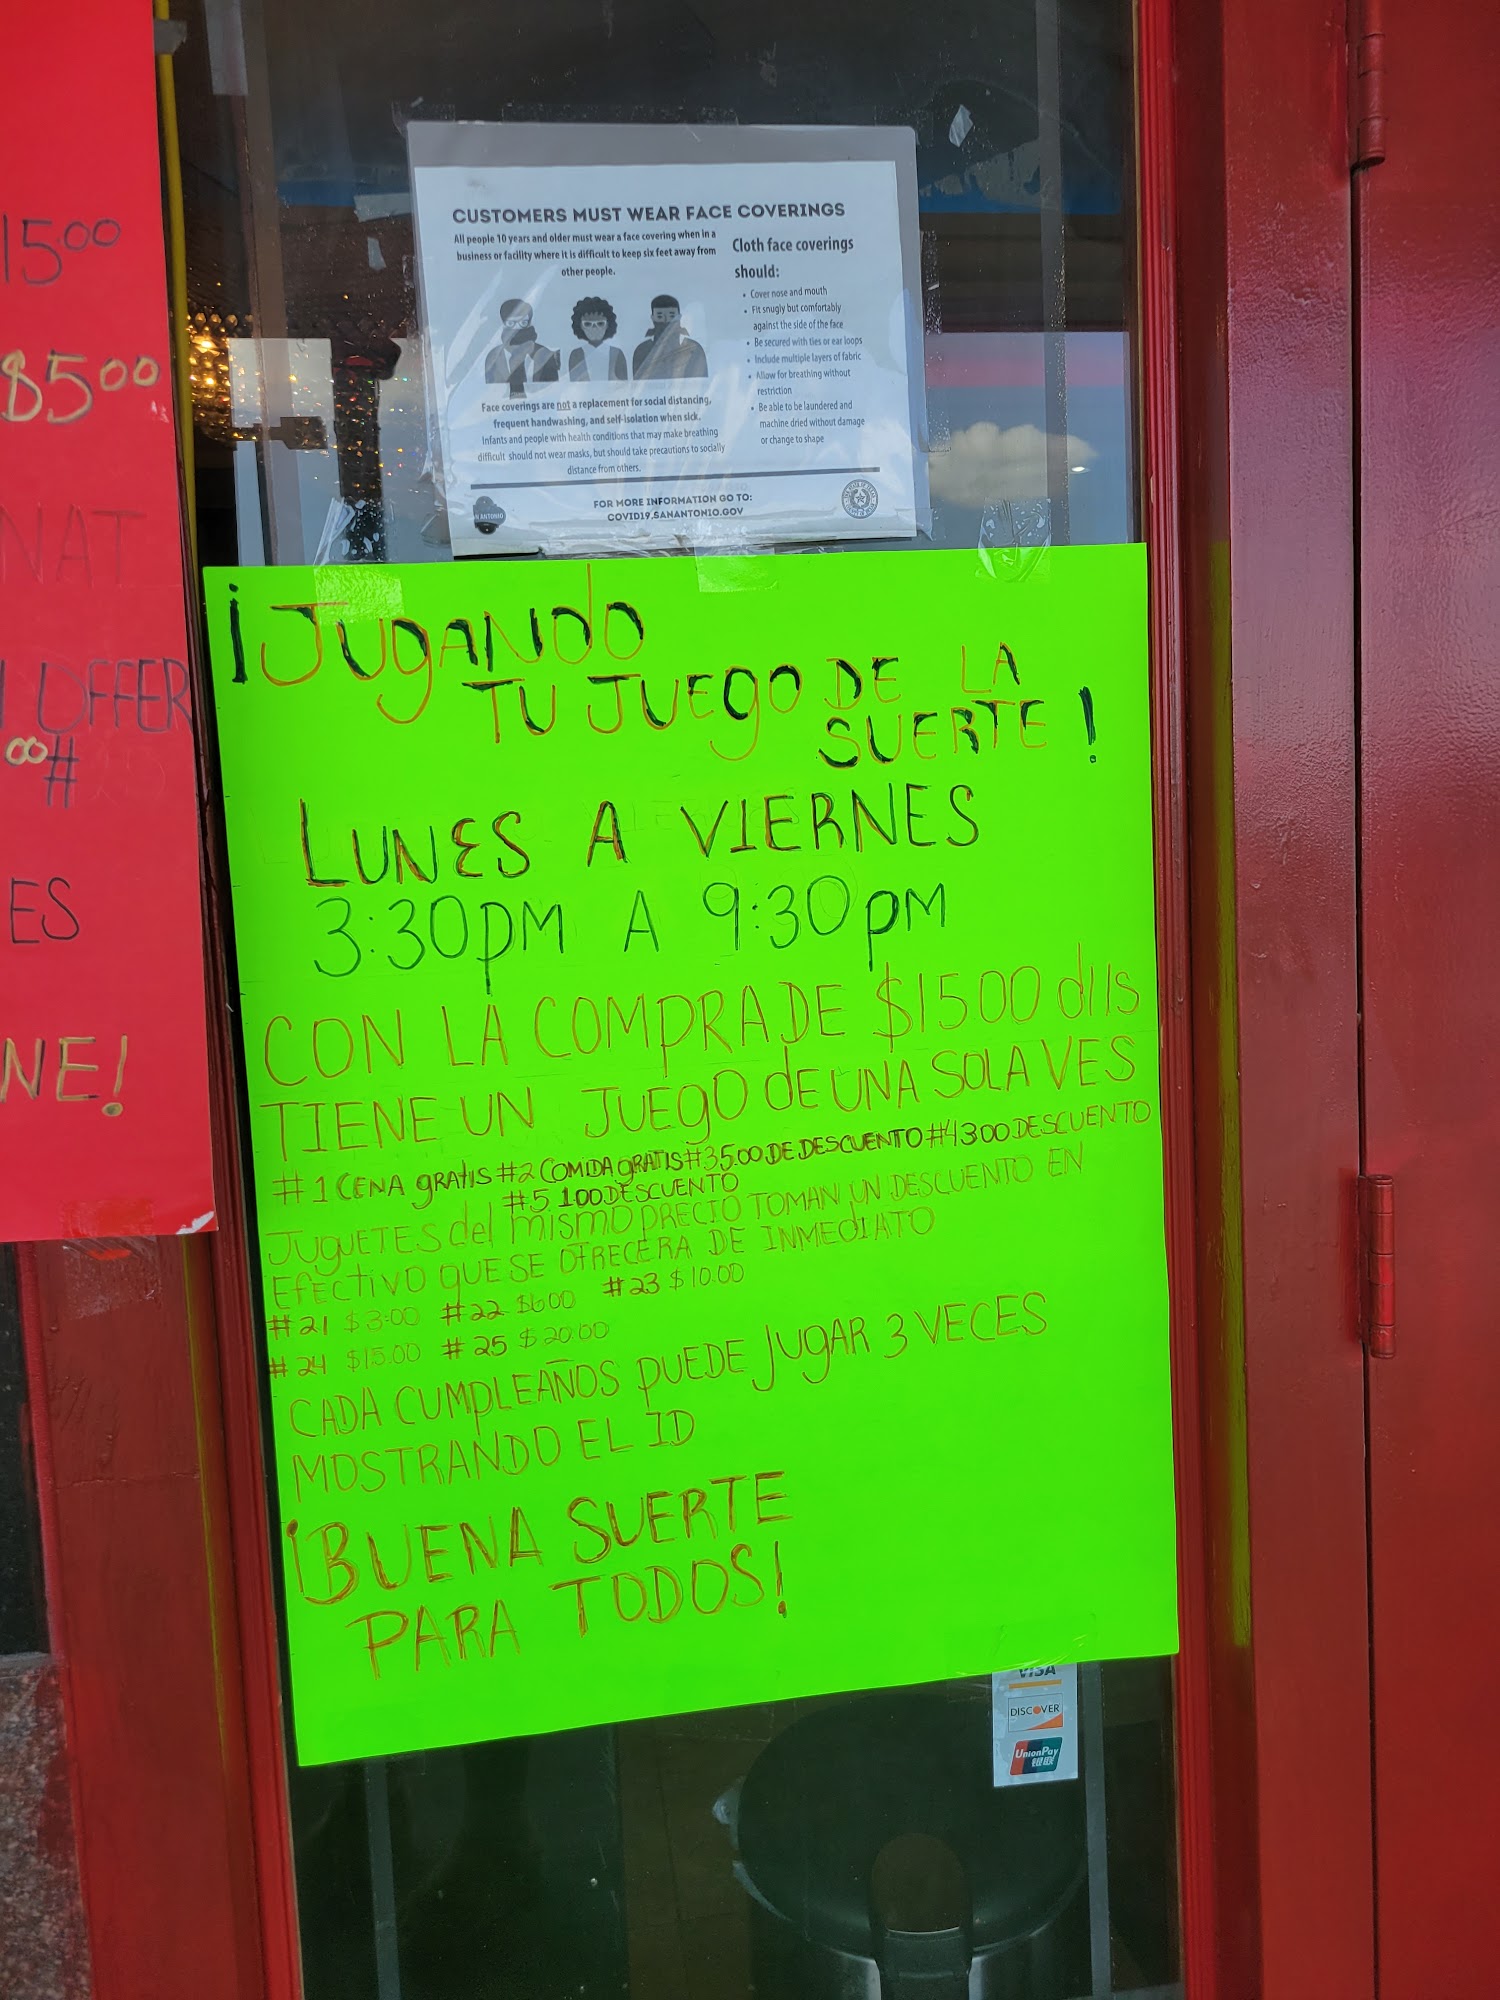 1500
$500
NAT
OFFER
00#
ES
NE!
CUSTOMERS MUST WEAR FACE COVERINGS
All people 10 years and older must wear a face covering when in a
business or facility where it is difficult to keep six feet away from
other people.
Cloth face coverings
should:
• Cover nose and mouth
• Fit snugly but comfortably
against the side of the face
• Be secured with ties or ear loops
• Include multiple layers of fabric
• Allow for breathing without
restriction
• Be able to be laundered and
machine dried without damage
or change to shape
Face coverings are not a replacement for social distancing,
frequent handwashing, and self-isolation when sick.
Infants and people with health conditions that may make breathing
difficult should not wear masks, but should take precautions to socially
distance from others.
FOR MORE INFORMATION GO TO:
COVID19.SANANTONIO.GOV
¡JUGANDO
TU JUEGO DE LA
SUERTE!
LUNES A VIERNES
3:30PM A 9:30PM
CON LA COMPRA DE $1500 dlls
TIENE UN JUEGO dE UNA SOLA VES
#1 CENA gRAtIS #2 COMIDA gRATIS #3 5.00 DE DESCUENTO #4 300 DESCUENTO
#5 1.00 DESCUENTO
JUGUETES del MISMO PRECIO TOMAN UN DESCUENTO EN
EFECTIVO QUE SE OFRECERA DE INMEDIATO
#21 $3.00 #22 $6.00 #23 $10.00
#24 $15.00 #25 $20.00
CADA CUMPLEAÑOS PUEDE JUGAR 3 VECES
MOSTRANDO EL ID
¡BUENA SUERTE
PARA TODOS!
VISA
DISCOVER
UnionPay
银联